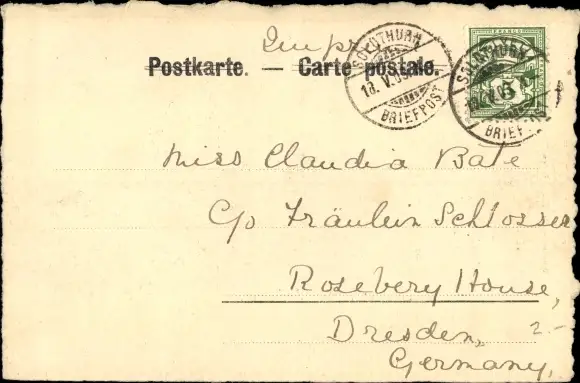 Impr
Postkarte. — Carte postale.
SOLOTHURN
18. V. 05
BRIEFPOST
FRANCO
SOLOTHURN
5
BRIEFPOST
Miss Claudia Bate
C/o Fräulein Schlosser
Rosebery House,
Dresden,
2.-
Germany,